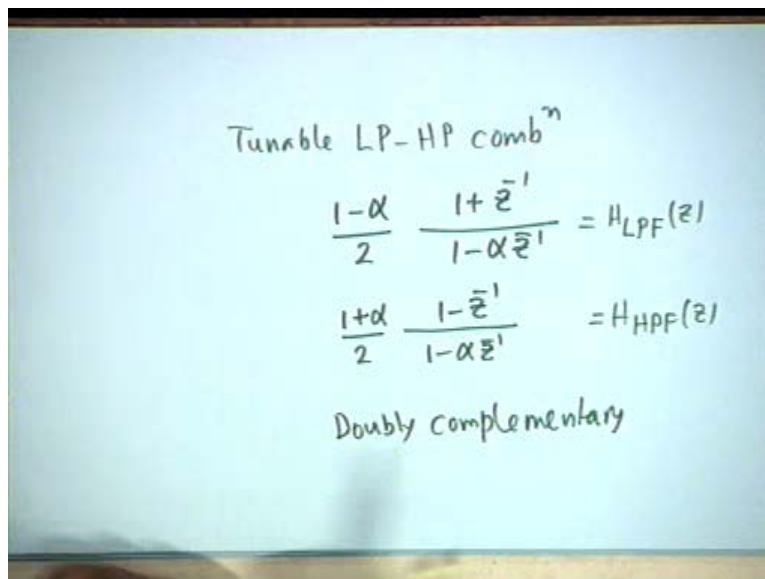 Tunable LP-HP combⁿ
(1-α)/2 (1+z⁻¹)/(1-αz⁻¹) = H_LPF(z)
(1+α)/2 (1-z⁻¹)/(1-αz⁻¹) = H_HPF(z)
Doubly complementary